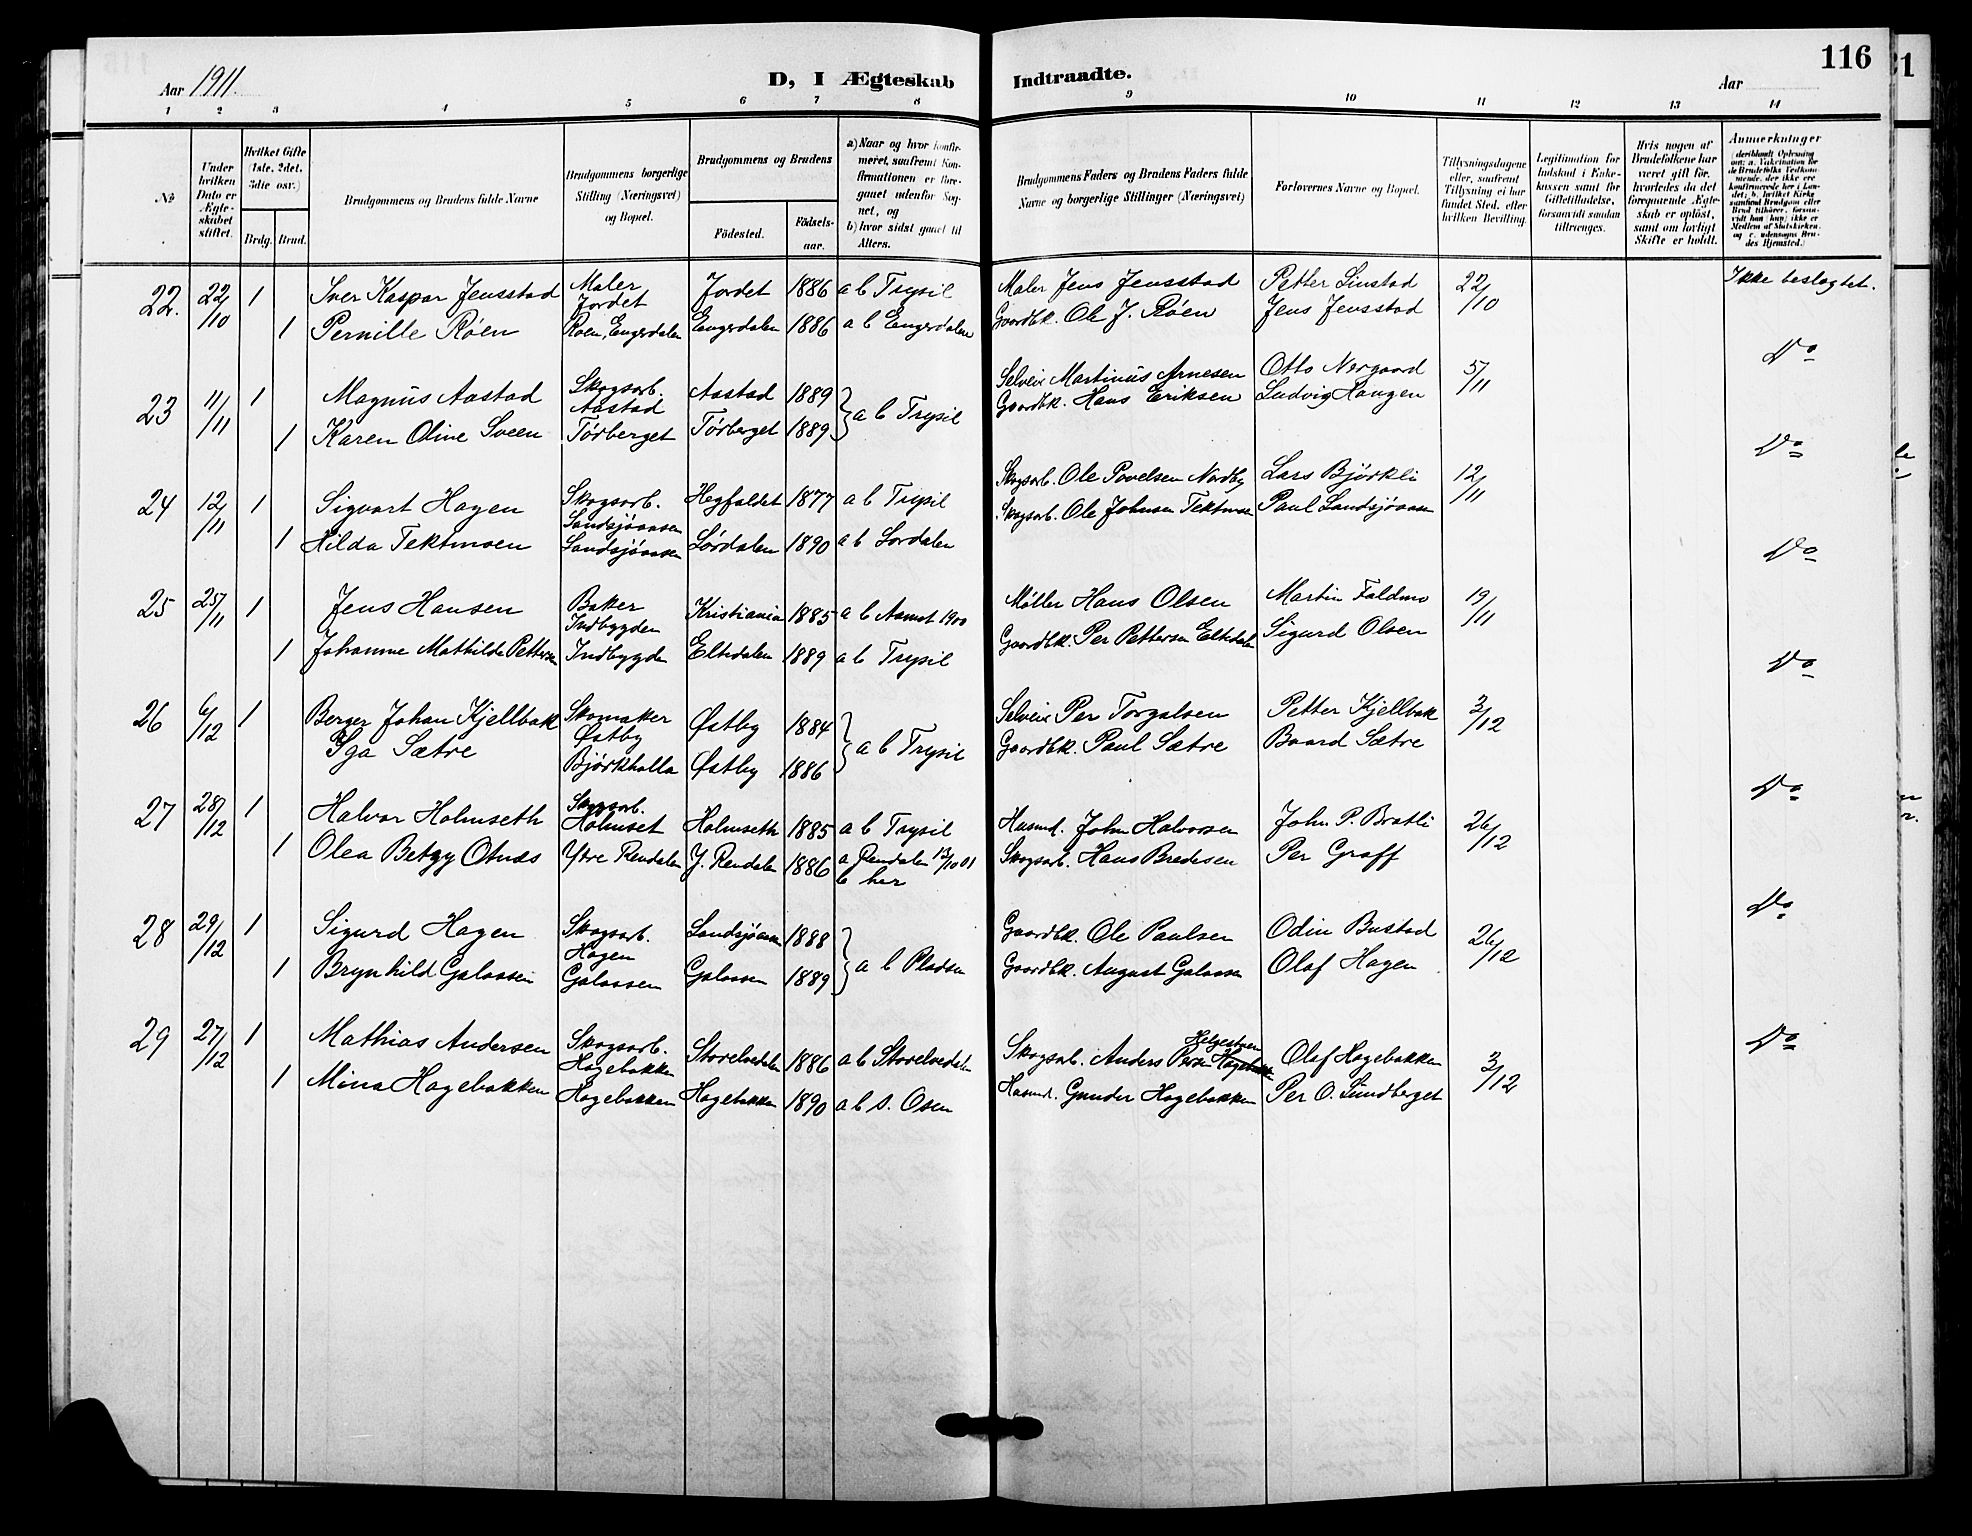 116
Aar 1911.
D, I Ægteskab Indtraadte.
Aar
1 2 3 4 5 6 7 8 9 10 11 12 13 14
No
Under hvilken Dato er Ægteskabet stiftet.
Hvilket Gifte (1ste, 2det, 3die osv.)
Brdg. Brud.
Brudgommens og Brudens fulde Navne
Brudgommens borgerlige Stilling (Næringsvei) og Bopæl.
Brudgommens og Brudens
Födested. Födsels-aar.
a) Naar og hvor konfirmeret, saafremt Konfirmationen er foregaaet udenfor Sognet, og
b) hvor sidst gaaet til Alters.
Brudgommens Faders og Brudens Faders fulde Navne og borgerlige Stillinger (Næringsvei)
Forlovernes Navne og Bopæl.
Tillysningsdagene eller, saafremt Tillysning ei har fundet Sted, efter hvilken Bevilling.
Legitimation for Indskud i Enkekassen samt for Giftetilladelse, forsaavidt saadan tiltrænges.
Hvis nogen af Brudefolkene har været gift før, hvorledes da det foregaaende Ægteskab er opløst, samt om lovligt Skifte er holdt.
Anmerkninger
22. 22/10 1 Sver Kaspar Jensstad Maler Jordet Jordet 1886 a b Trysil Maler Jens Jensstad Petter Linstad 22/10 Ikke beslegtet.
1 Pernille Røen Røen, Engerdalen Engerdalen 1886 a b Engerdalen Gaardbk. Ole J. Røen Jens Jensstad
23 11/11 1 Magnus Aastad Skogsarb. Aastad Aastad 1889 a b Trysil Selveier Martinus Arnesen Otto Nergaard 5/11 Do
1 Karen Oline Sveen Tørberget Tørberget 1889 Gaardbk. Hans Eriksen Ludvig Haugen
24 12/11 1 Sigvart Hagen Skogsarb. Landsjøaasen Hegfaldet 1877 a b Trysil Skogsarb. Ole Povelsen Nordby Lars Bjørkli 12/11 Do
1 Hilda Tektmoen Landsjøaasen Lørdalen 1890 a b Lørdalen Skogsarb. Ole Johnsen Tektmoen Paul Landsjøaasen
25 25/11 1 Jens Hansen Baker Indbygden Kristiania 1885 a b Aamot 1900 Møller Hans Olsen Martin Faldmo 19/11 Do
1 Johanne Mathilde Pettersen Indbygden Eltdalen 1889 a b Trysil Gaardbk. Per Pettersen Eltdalen Sigurd Olsen
26 6/12 1 Berger Johan Kjellbak Skomaker Østby Østby 1884 a b Trysil Selveier Per Torgalsen Petter Kjellbak 3/12 Do
Iga Sætre Bjørkholla Østby 1886 Gaardbk. Paul Sætre Baard Sætre
27 28/12 1 Halvor Holmseth Skogsarb. Holmset Holmseth 1885 a b Trysil Husmd. John Halvorsen John P. Bratli 26/12 Do
1 Olea Betzy Otnæs Ytre Rendalen Y. Rendalen 1886 a Rendalen 13/10 01 b her Skogsarb. Hans Bredesen Per Graff
28 29/12 1 Sigurd Hagen Skogsarb. Hagen Landsjøaasen 1888 a b Pladsen Gaardbk. Ole Paulsen Odin Bustad 26/12 Do
1 Brynhild Galaasen Galaasen Galaasen 1889 Gaardbk. August Galaasen Olaf Hagen
29 27/12 1 Mathias Andersen Skogsarb. Hagebakken Storelvedalen 1886 a b Storelvedalen Skogsarb. Anders Persen Helgestoen Olaf Hagebakken 3/12 Do
1 Mina Hagebakken Hagebakken Hagebakken 1890 a b s. Osen Husmd. Gunder Hagebakken Per O. Sundberget